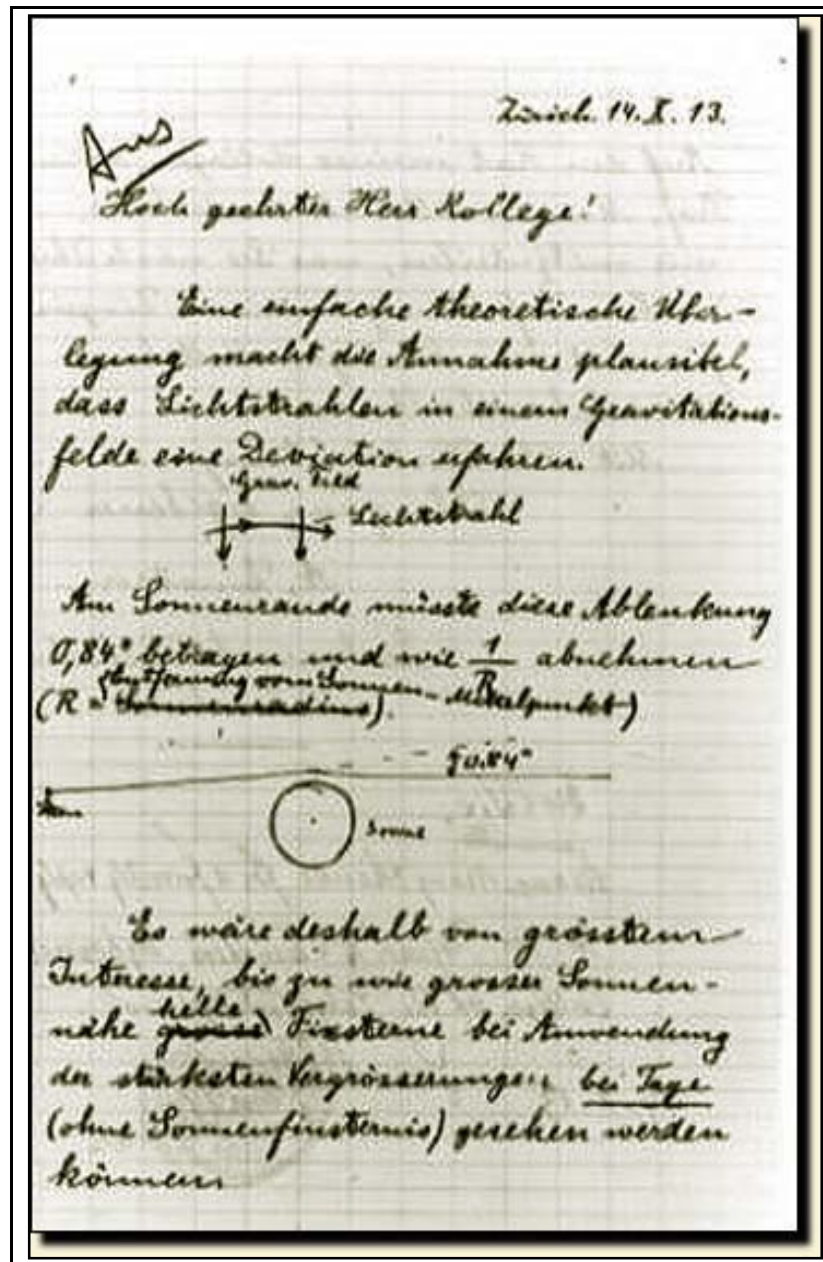 Zürich. 14. X. 13.
Hoch geehrter Herr Kollege!
Eine einfache theoretische Über-
legung macht die Annahme plausibel,
dass Lichtstrahlen in einem Gravitations-
felde eine Deviation erfahren.
Grav. Feld
Lichtstrahl
Am Sonnenrande müsste diese Ablenkung
0,84" betragen und wie 1/R abnehmen
(R = Sonnenradius Entfernung vom Sonnen-Mittelpunkt)
0.84"
Sonne
Es wäre deshalb von grösstem
Interesse, bis zu wie grosser Sonnen-
nähe grosse helle Fixsterne bei Anwendung
der stärksten Vergrösserungen bei Tage
(ohne Sonnenfinsternis) gesehen werden
können